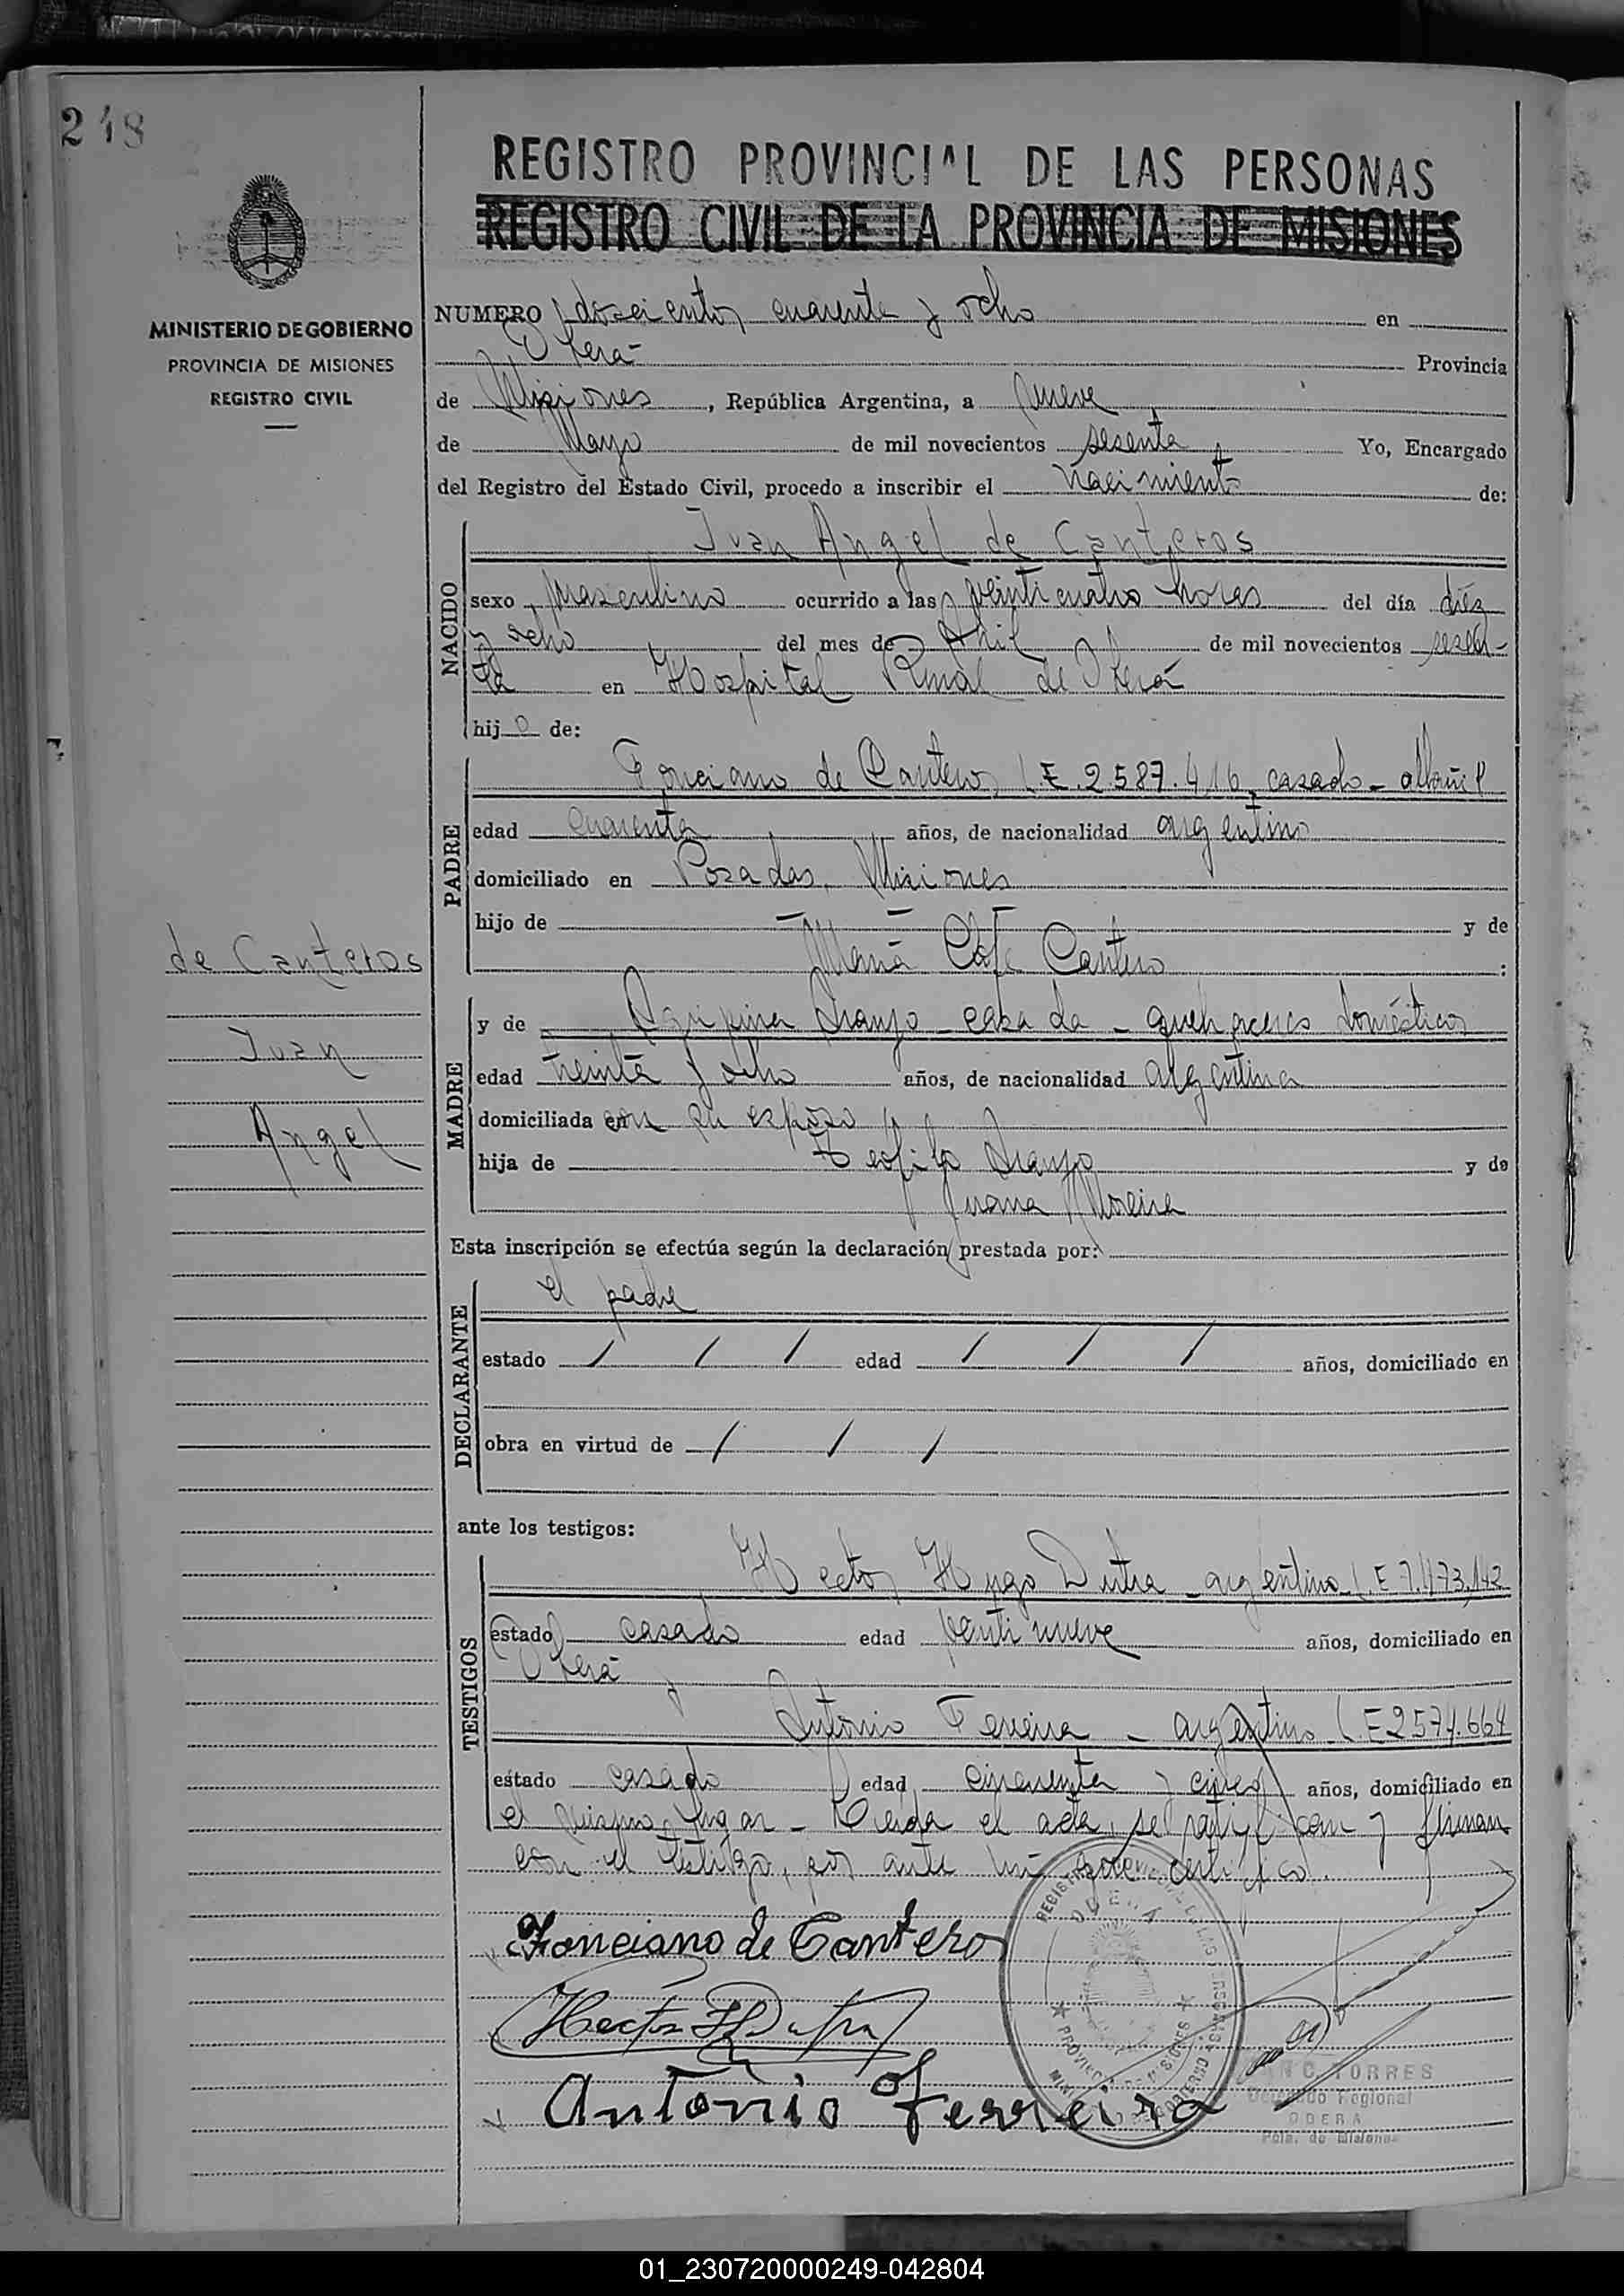 248
REGISTRO PROVINCIAL DE LAS PERSONAS
REGISTRO CIVIL DE LA PROVINCIA DE MISIONES
MINISTERIO DE GOBIERNO
PROVINCIA DE MISIONES
REGISTRO CIVIL
NUMERO doscientos cuarenta y ocho en
Oberá Provincia
de Misiones, República Argentina, a nueve
de Mayo de mil novecientos sesenta Yo, Encargado
del Registro del Estado Civil, procedo a inscribir el nacimiento de:
NACIDO
Juan Angel de Canteros
sexo masculino ocurrido a las veinticuatro horas del día diez
y ocho del mes de Abril de mil novecientos sesen-
ta en Hospital Rural de Oberá
hijo de:
PADRE
de Cantero, L.E. 2.587.416, casado - albañil
edad cuarenta años, de nacionalidad argentino
domiciliado en Posadas, Misiones
hijo de — — — y de
María Cantero :
de Canteros
Juan
Angel
MADRE
y de Agripina Araujo - casada - quehaceres domésticos
edad treinta y ocho años, de nacionalidad argentina
domiciliada en con su esposo
hija de Teofilo Araujo y de
Juana Moreira
Esta inscripción se efectúa según la declaración prestada por:
DECLARANTE
el padre
estado / / / edad / / / años, domiciliado en
obra en virtud de / / /
ante los testigos:
TESTIGOS
Hector Hugo Dutra - argentino - L.E 7.473.142
estado casado edad veintinueve años, domiciliado en
Oberá
y
Antonio Ferreira - argentino - L.E 2.574.664
estado casado edad cincuenta y cinco años, domiciliado en
el mismo lugar - Leida el acta, se ratifican y firman
con el testigo, por ante mí que certifico.
de Cantero
Hector H Dutra
Antonio Ferreira
REGISTRO PROVINCIAL DE LAS PERSONAS
OBERA
PROVINCIA DE MISIONES
C. TORRES
Delegado Regional
OBERA
Pcia. de Misiones
01_230720000249-042804